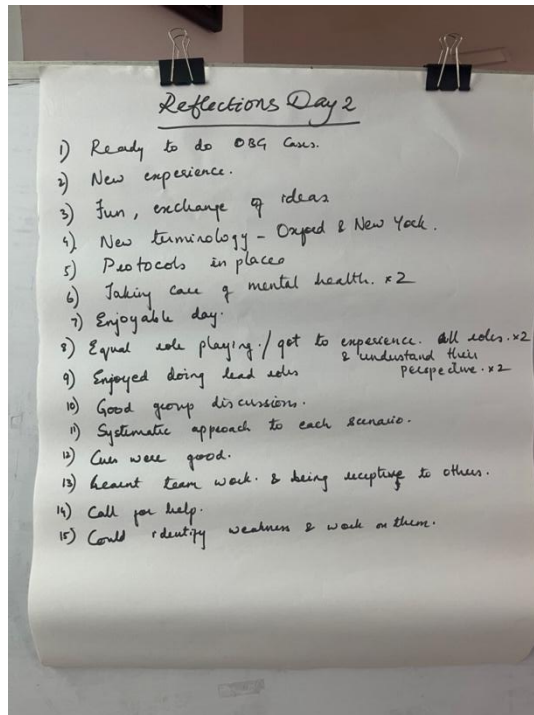 Reflections Day 2
1) Ready to do OBG Cases.
2) New experience.
3) Fun, exchange of ideas
4) New terminology - Oxford & New York.
5) Protocols in place
6) Taking care of mental health. x2
7) Enjoyable day.
8) Equal role playing./ got to experience. all roles. x2
& understand their
perspective. x2
9) Enjoyed doing lead roles
10) Good group discussions.
11) Systematic approach to each scenario.
12) Cues were good.
13) Learnt team work. & being receptive to others.
14) Call for help.
15) Could identify weakness & work on them.